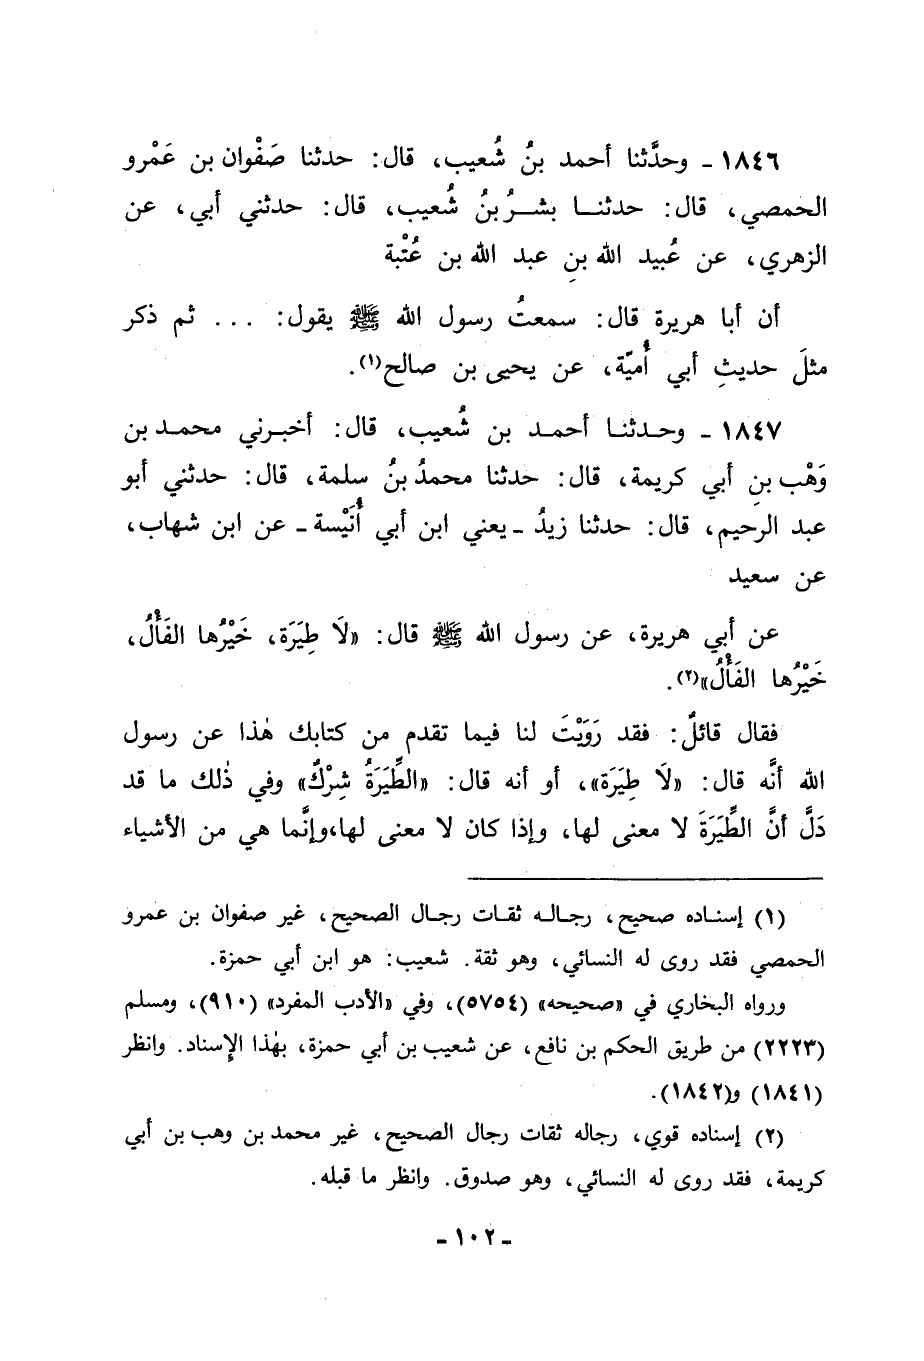 ١٨٤٦ ـ وحدَّثنا أحمد بنُ شُعيب، قال: حدثنا صَفْوان بن عَمْرو
الحمصي، قال: حدثنــا بشــرُ بنُ شُعيب، قال: حدثني أبي، عن
الزهري، عن عُبيد الله بنِ عبد الله بن عُتْبة
أن أبا هريرة قال: سمعتُ رسول الله ﷺ يقول: ... ثم ذكر
مثلَ حديثِ أبي أُميّة، عن يحيى بن صالح(١).
١٨٤٧ ـ وحـدثنـا أحمـد بن شُعيب، قال: أخبـرني محمـد بن
وَهْب بنِ أبي كريمة، قال: حدثنا محمدُ بنُ سلمة، قال: حدثني أبو
عبد الرحيم، قال: حدثنا زيدُ ـ يعني ابن أبي أُنَيْسة ـ عن ابن شهاب،
عن سعيد
عن أبي هريرة، عن رسول الله ﷺ قال: «لَا طِيَرَة، خَيْرُها الفَأْلُ،
خَيْرُها الفَأْلُ»(٢).
فقال قائلٌ: فقد رَوَيْتَ لنا فيما تقدم من كتابك هٰذا عن رسول
الله أنَّه قال: «لَا طِيَرَة»، أو أنه قال: «الطِّيَرَةُ شِرْكٌ» وفي ذٰلك ما قد
دَلَّ أنَّ الطِّيَرَةَ لا معنى لها، وإذا كان لا معنى لها،وإنَّما هي من الأشياء
(١) إسنـاده صحيح، رجـالـه ثقـات رجـال الصحيح، غير صفوان بن عمرو
الحمصي فقد روى له النسائي، وهو ثقة. شعيب: هو ابن أبي حمزة.
ورواه البخاري في «صحيحه» (٥٧٥٤)، وفي «الأدب المفرد» (٩١٠)، ومسلم
(٢٢٢٣) من طريق الحكم بن نافع، عن شعيب بن أبي حمزة، بهٰذا الإِسناد. وانظر
(١٨٤١) و(١٨٤٢).
(٢) إسناده قوي، رجاله ثقات رجال الصحيح، غير محمد بن وهب بن أبي
كريمة، فقد روى له النسائي، وهو صدوق. وانظر ما قبله.
ـ ١٠٢ ـ